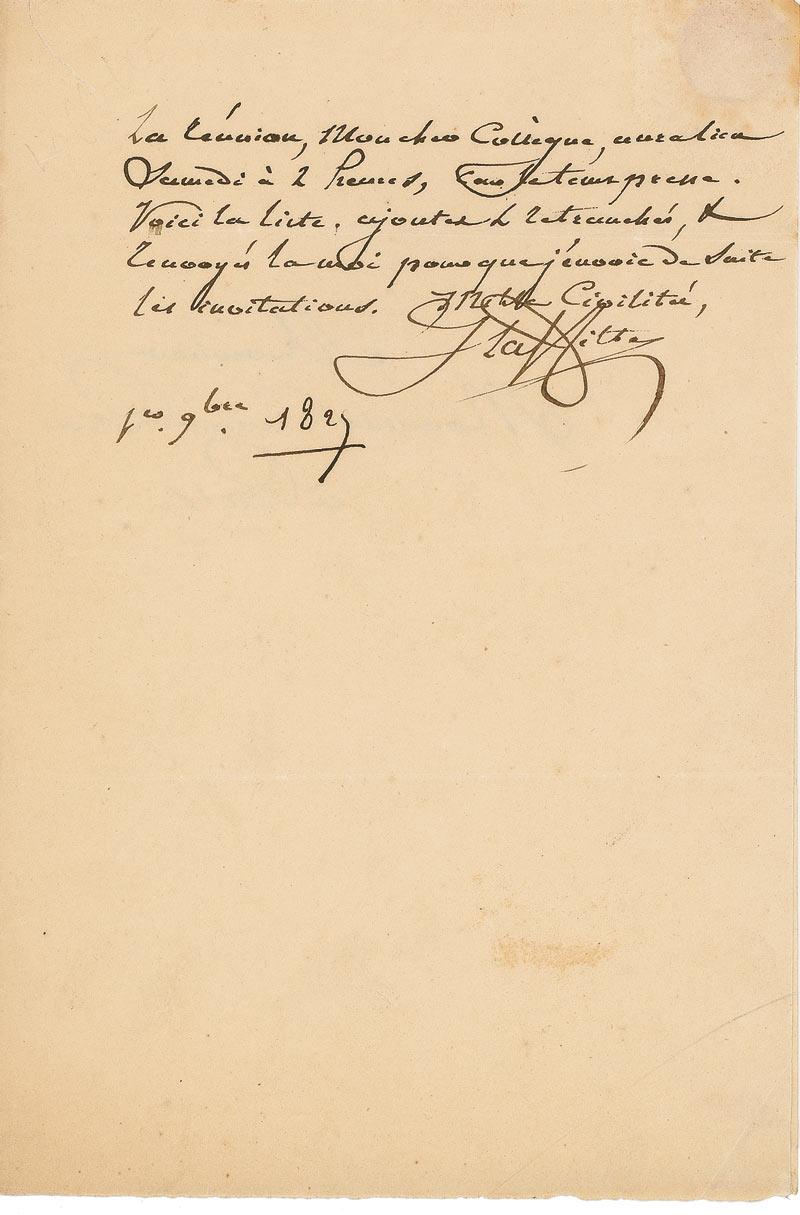 La réunion, Mon cher Collègue, aura lieu
Samedi à 2 heures, Car le tems presse.
Voici la liste. ajoutés & retranchés, &
renvoyés la moi pour que j'envoie de Suite
les invitations. Mille Civilités,
J Laffitte
1er. 9bre. 1827